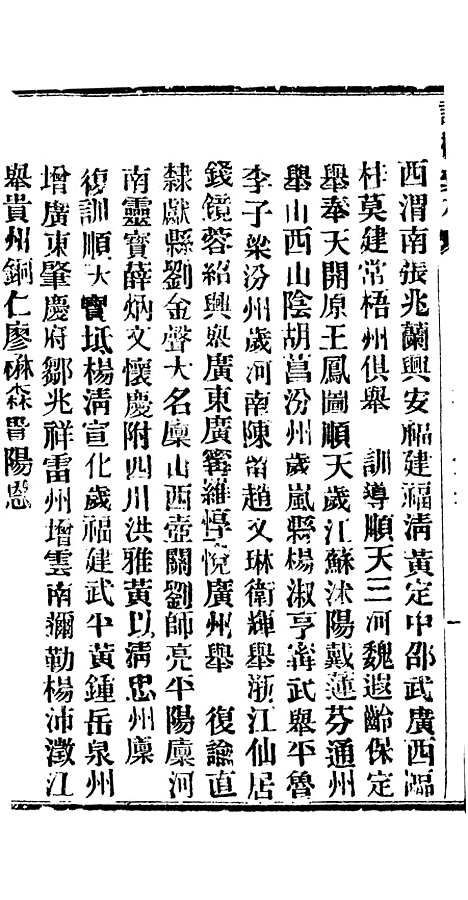 西渭南張兆蘭興安福建福清黃定中邵武廣西臨
桂莫建常梧州俱舉　訓導順天三河魏遐齡保定
舉奉天開原王鳳圖順天歲江蘇沭陽戴蓮芬通州
舉山西山陰胡菖汾州歲嵐縣楊淑亨甯武舉平魯
李子梁汾州歲河南陳留趙文琳衛輝舉浙江仙居
錢鏡蓉紹興舉廣東廣甯羅惇悅廣州舉　復諭直
隸獻縣劉金聲大名廩山西壺關劉師亮平陽廩河
南靈寶薛炳文懷慶附四川洪雅黃以清忠州廩
復訓順天寶坻楊清宣化歲福建武平黃鍾岳泉州
增廣東肇慶府鄒兆祥雷州增雲南彌勒楊沛澂江
舉貴州銅仁廖森晋陽恩